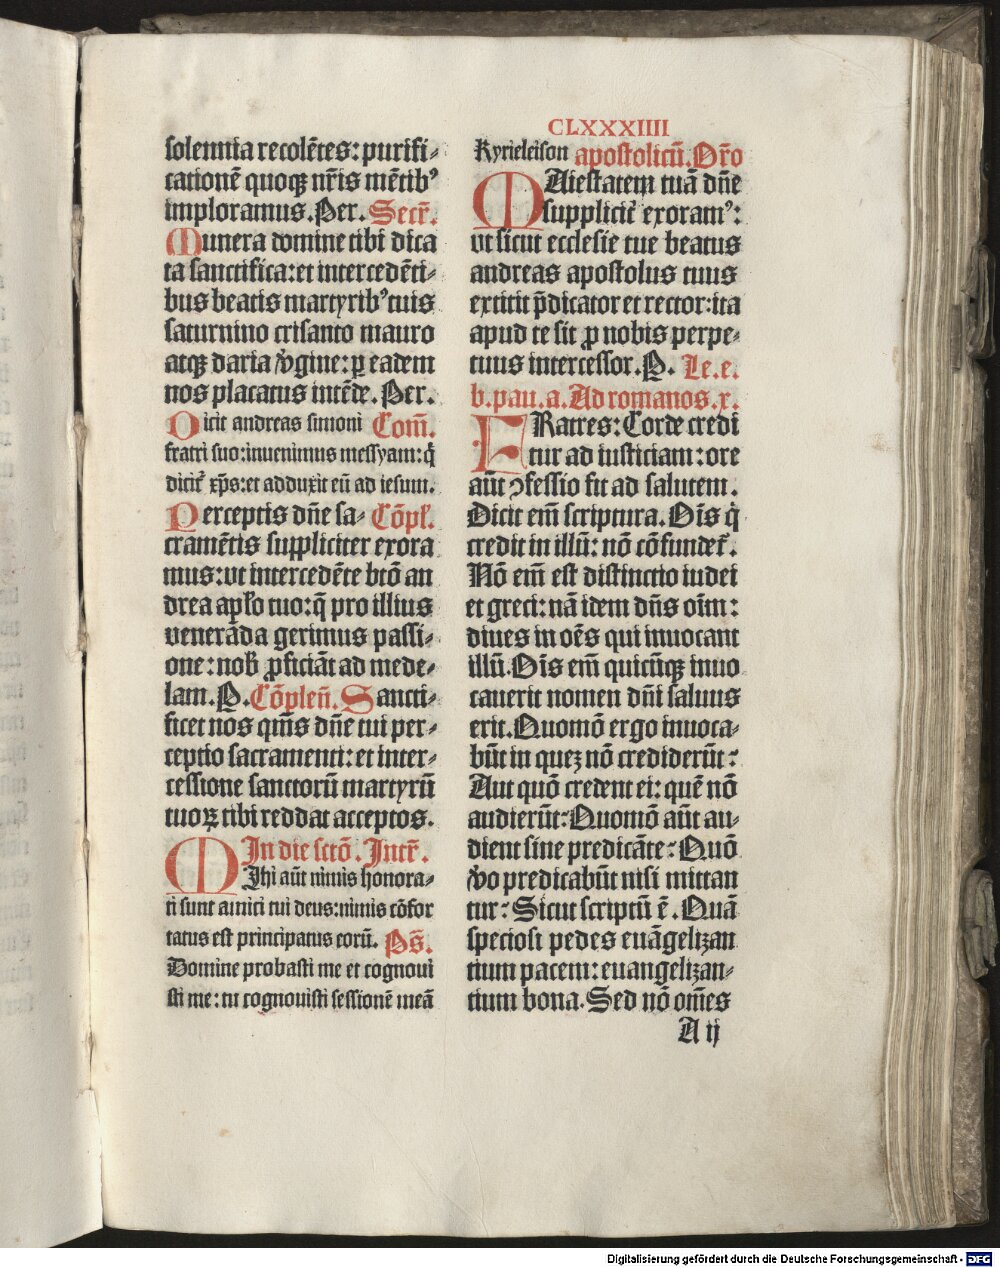 CLXXXIIII
solemnia recolētes: purifi-
cationē quoqꝫ nr̄is mētibꝰ
imploramus. Per. Secr̄.
Munera domine tibi dica
ta sanctifica: et intercedēti-
bus beatis martyribꝰ tuis
saturnino crisanto mauro
atqꝫ daria v̓gine: ꝑ eadem
nos placatus intēde. Per.
Dicit andreas simoni Com̄.
fratri suo: inuenimus messyam: q̄
dicit᷑ xp̄s: et adduxit eū ad iesum.
Perceptis dn̄e sa- Cōpl̄.
cramētis suppliciter exora
mus: vt intercedēte btō an
drea apl̓o tuo: q̄ pro illius
venerāda gerimus passi-
one: nob̄ ꝓficiāt ad mede-
lam. P. Cōplen̄. Sancti-
ficet nos qum̄s dn̄e tui per-
ceptio sacramenti: et inter-
cessione sanctorū martyrū
tuoꝝ tibi reddat acceptos.
In die sctō. Intr̄.
Mihi aūt nimis honora-
ti sunt amici tui deus: nimis cōfor
tatus est principatus eorū. Ps̄.
Domine probasti me et cognoui
sti me: tu cognouisti sessionē meā
Kyrieleison apostolicū. Or̄o
MAiestatem tuā dn̄e
supplicit᷑ exoramꝰ:
vt sicut ecclesie tue beatus
andreas apostolus tuus
extitit p̄dicator et rector: ita
apud te sit ꝓ nobis perpe-
tuus intercessor. P. Le. e.
b. pau. a. Ad romanos. x.
FRatres: Corde credi
tur ad iusticiam: ore
aūt ꝯfessio fit ad salutem.
Dicit em̄ scriptura. Oīs q̇
credit in illū: nō cōfundet᷑.
Nō em̄ est distinctio iudei
et greci: nā idem dn̄s oīm:
diues in oēs qui inuocant
illū. Oīs em̄ quicūqꝫ inuo
cauerit nomen dn̄i saluus
erit. Quomō ergo inuoca-
būt in quez nō crediderūt:
Aut quō credent ei: quē nō
audierūt: Quomō aūt au-
dient sine predicāte: Quō
v̓o predicabūt nisi mittan
tur: Sicut scriptū ē. Quā
speciosi pedes euāgelizan
tium pacem: euangelizan-
tium bona. Sed nō om̄es
A ij
Digitalisierung gefördert durch die Deutsche Forschungsgemeinschaft - DFG